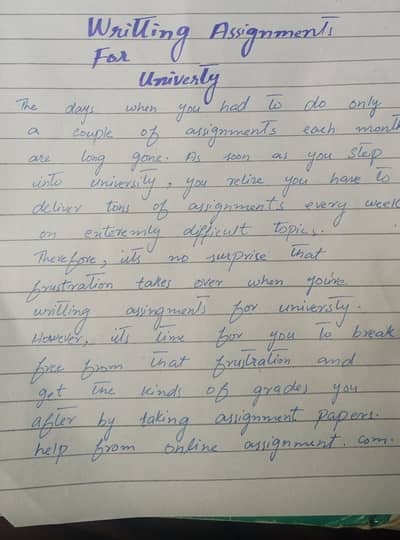 Writting Assignments
For
Univerty
The days when you had to do only
a couple of assignments each month
are long gone. As soon as you step
into university, you relize you have to
deliver tons of assignments every week
on exteremly difficult topics.
Therefore, its no surprise that
frustration takes over when you're
writting assingments for universty.
However, its time for you to break
free from that frustration and
get the kinds of grades you
after by taking assignment papers.
help from online assignment.com.